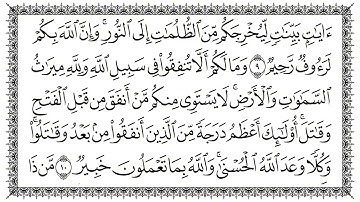 ءَايَٰتٍۭ بَيِّنَٰتٍ لِّيُخْرِجَكُم مِّنَ ٱلظُّلُمَٰتِ إِلَى ٱلنُّورِ ۚ وَإِنَّ ٱللَّهَ بِكُمْ
لَرَءُوفٌ رَّحِيمٌ ٩ وَمَا لَكُمْ أَلَّا تُنفِقُوا۟ فِى سَبِيلِ ٱللَّهِ وَلِلَّهِ مِيرَٰثُ
ٱلسَّمَٰوَٰتِ وَٱلْأَرْضِ ۚ لَا يَسْتَوِى مِنكُم مَّنْ أَنفَقَ مِن قَبْلِ ٱلْفَتْحِ
وَقَٰتَلَ ۚ أُو۟لَٰٓئِكَ أَعْظَمُ دَرَجَةً مِّنَ ٱلَّذِينَ أَنفَقُوا۟ مِنۢ بَعْدُ وَقَٰتَلُوا۟ ۚ
وَكُلًّا وَعَدَ ٱللَّهُ ٱلْحُسْنَىٰ ۚ وَٱللَّهُ بِمَا تَعْمَلُونَ خَبِيرٌ ١٠ مَّن ذَا